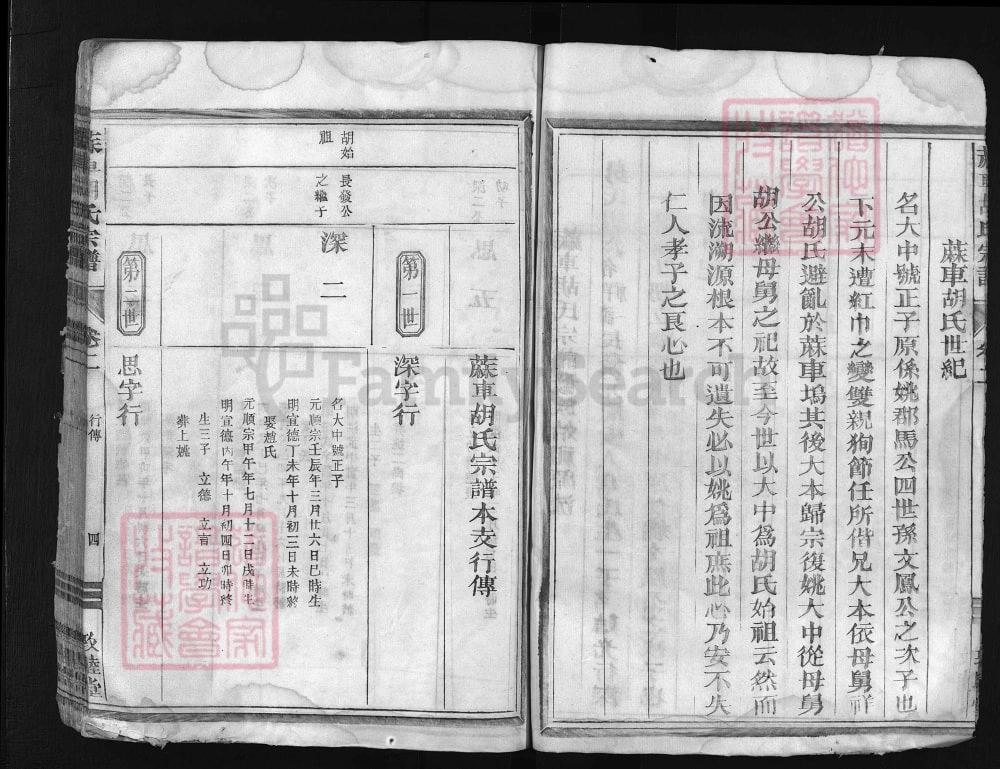 蔴車胡氏世紀
名大中號正子原係姚郡馬公四世孫文鳳公之次子也
下元末遭紅巾之變雙親狥節任所偕兄大本依母舅祥
公胡氏避亂於蔴車塢其後大本歸宗復姚大中從母舅
胡公繼母舅之祀故至今世以大中為胡氏始祖云然而
因流溯源根本不可遺失必以姚爲祖庶此心乃安不失
仁人孝子之良心也
蔴車胡氏宗譜本支行傳
第一世
深字行
胡始祖
長發公之繼子
深二
名大中號正子
元順宗壬辰年三月廿六日巳時生
明宣德丁未年十月初三日未時終
娶趙氏
元順宗甲午年七月十二日戌時生
明宣德丙午年十月初四日卯時終
生三子 立德 立言 立功
葬上姚
第二世
思字行
蔴車胡氏宗譜
卷二
行傳
四
敦睦堂
FamilySearch